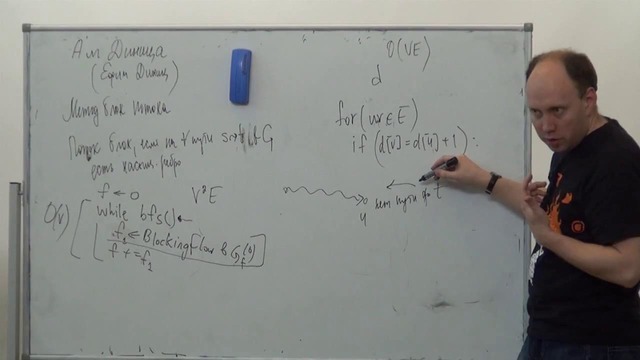 Ал Диница
(Ефим Диниц)
Метод блок потока
Поток блок, если на ∀ пути s→t в G
есть насыщ. ребро
f ← 0
V²E
O(V)
while bfs() ←
f₁ ← BlockingFlow в G_f⁽⁰⁾
f += f₁
O(VE)
d
for (uv ∈ E)
if (d[v] = d[u] + 1) :
u
нет пути до t